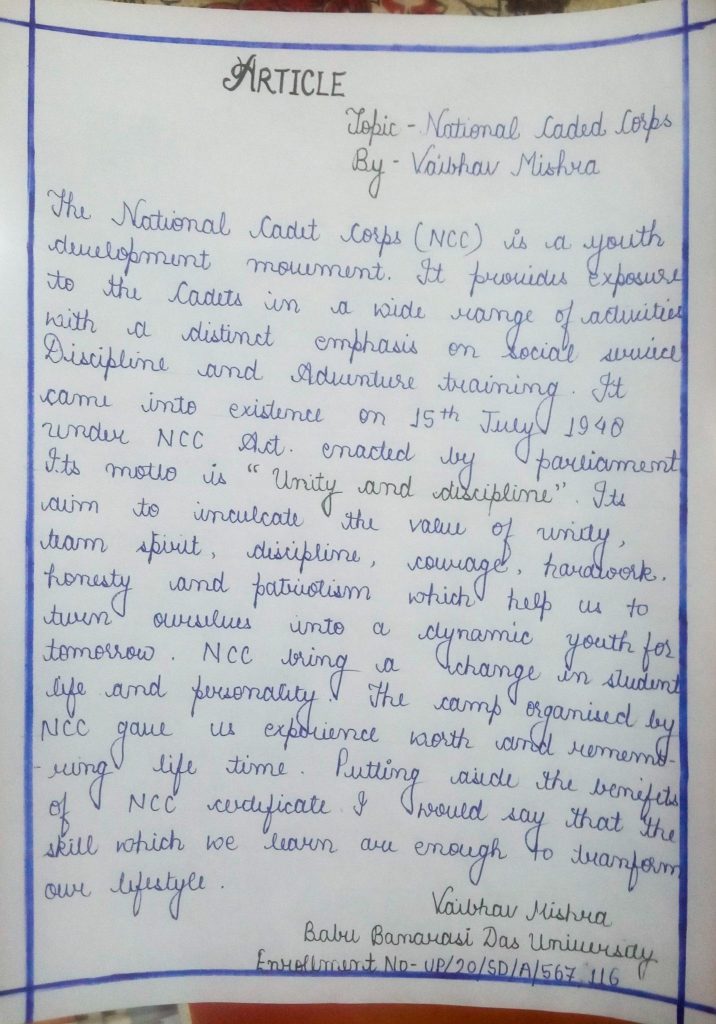 ARTICLE
Topic - National Caded Corps
By - Vaibhav Mishra
The National Cadet Corps (NCC) is a youth
development movement. It provides exposure
to the Cadets in a wide range of activities
with a distinct emphasis on social service
Discipline and Adventure training. It
came into existence on 15th July 1948
under NCC Act. enacted by parliament
Its motto is "Unity and discipline". Its
aim to inculcate the value of unity,
team spirit, discipline, courage, hardwork.
honesty and patriotism which help us to
turn ourselves into a dynamic youth for
tomorrow. NCC bring a change in student
life and personality. The camp organised by
NCC gave us experience worth and rememb-
-ring life time. Putting aside the benifets
of NCC certificate I would say that the
skill which we learn are enough to tranform
our lifestyle.
Vaibhav Mishra
Babu Banarasi Das University
Enrollment No- UP/20/SD/A/567116